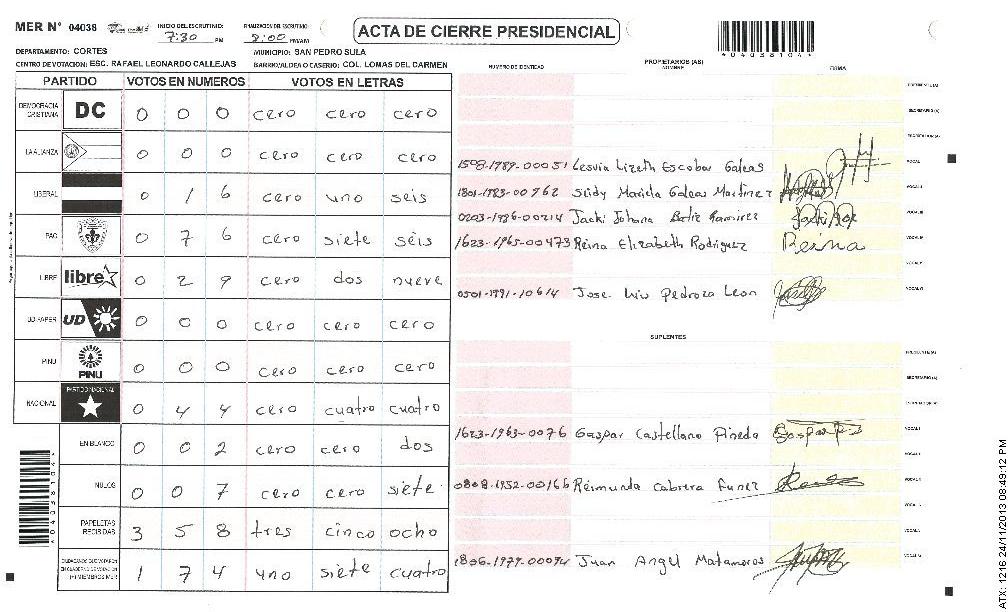 MER N° 04038
INICIO DEL ESCRUTINIO:
7:30 PM
FINALIZACION DEL ESCRUTINIO:
8:00 PM/AM
ACTA DE CIERRE PRESIDENCIAL
04038104
DEPARTAMENTO: CORTES
MUNICIPIO: SAN PEDRO SULA
CENTRO DE VOTACION: ESC. RAFAEL LEONARDO CALLEJAS
BARRIO/ALDEA O CASERIO: COL. LOMAS DEL CARMEN
NUMERO DE IDENTIDAD
PROPIETARIOS (AS)
NOMBRE
FIRMA
PARTIDO VOTOS EN NUMEROS VOTOS EN LETRAS
DEMOCRACIA CRISTIANA DC 0 0 0 cero cero cero
LA ALIANZA 0 0 0 cero cero cero
LIBERAL 0 1 6 cero uno seis
PAC 0 7 6 cero siete seis
LIBRE libre 0 2 9 cero dos nueve
UD-FAPER UD 0 0 0 cero cero cero
PINU PINU 0 0 0 cero cero cero
NACIONAL PARTIDO NACIONAL 0 4 4 cero cuatro cuatro
EN BLANCO 0 0 2 cero cero dos
NULOS 0 0 7 cero cero siete
PAPELETAS RECIBIDAS 3 5 8 tres cinco ocho
CIUDADANOS QUE VOTARON EN CUADERNO DE VOTACION (+) MIEMBROS MER 1 7 4 uno siete cuatro
PRESIDENTE (A)
SECRETARIO (A)
ESCRUTADOR (A)
1508-1989-00051 Lesvia Lizeth Escobar Galeas VOCAL I
1801-1983-00962 Sindy Mariela Galeas Martinez VOCAL II
0203-1986-00214 Jacki Johana Betiz Ramirez VOCAL III
1623-1965-00473 Reina Elizabeth Rodriguez Reina VOCAL IV
VOCAL V
0501-1991-10614 Jose Luis Pedroza Leon VOCAL VI
SUPLENTES
PRESIDENTE (A)
SECRETARIO (A)
ESCRUTADOR (A)
1623-1963-0076 Gaspar Castellano Pineda VOCAL I
VOCAL II
0808-1952-00166 Reimunda Cabrera Funez VOCAL III
1806-1979-00094 Juan Angel Matamoros VOCAL VI
04038104
ATX: 1216 24/11/2013 08:49:12 PM